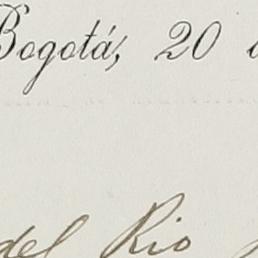 Bogotá, 20
del Rio